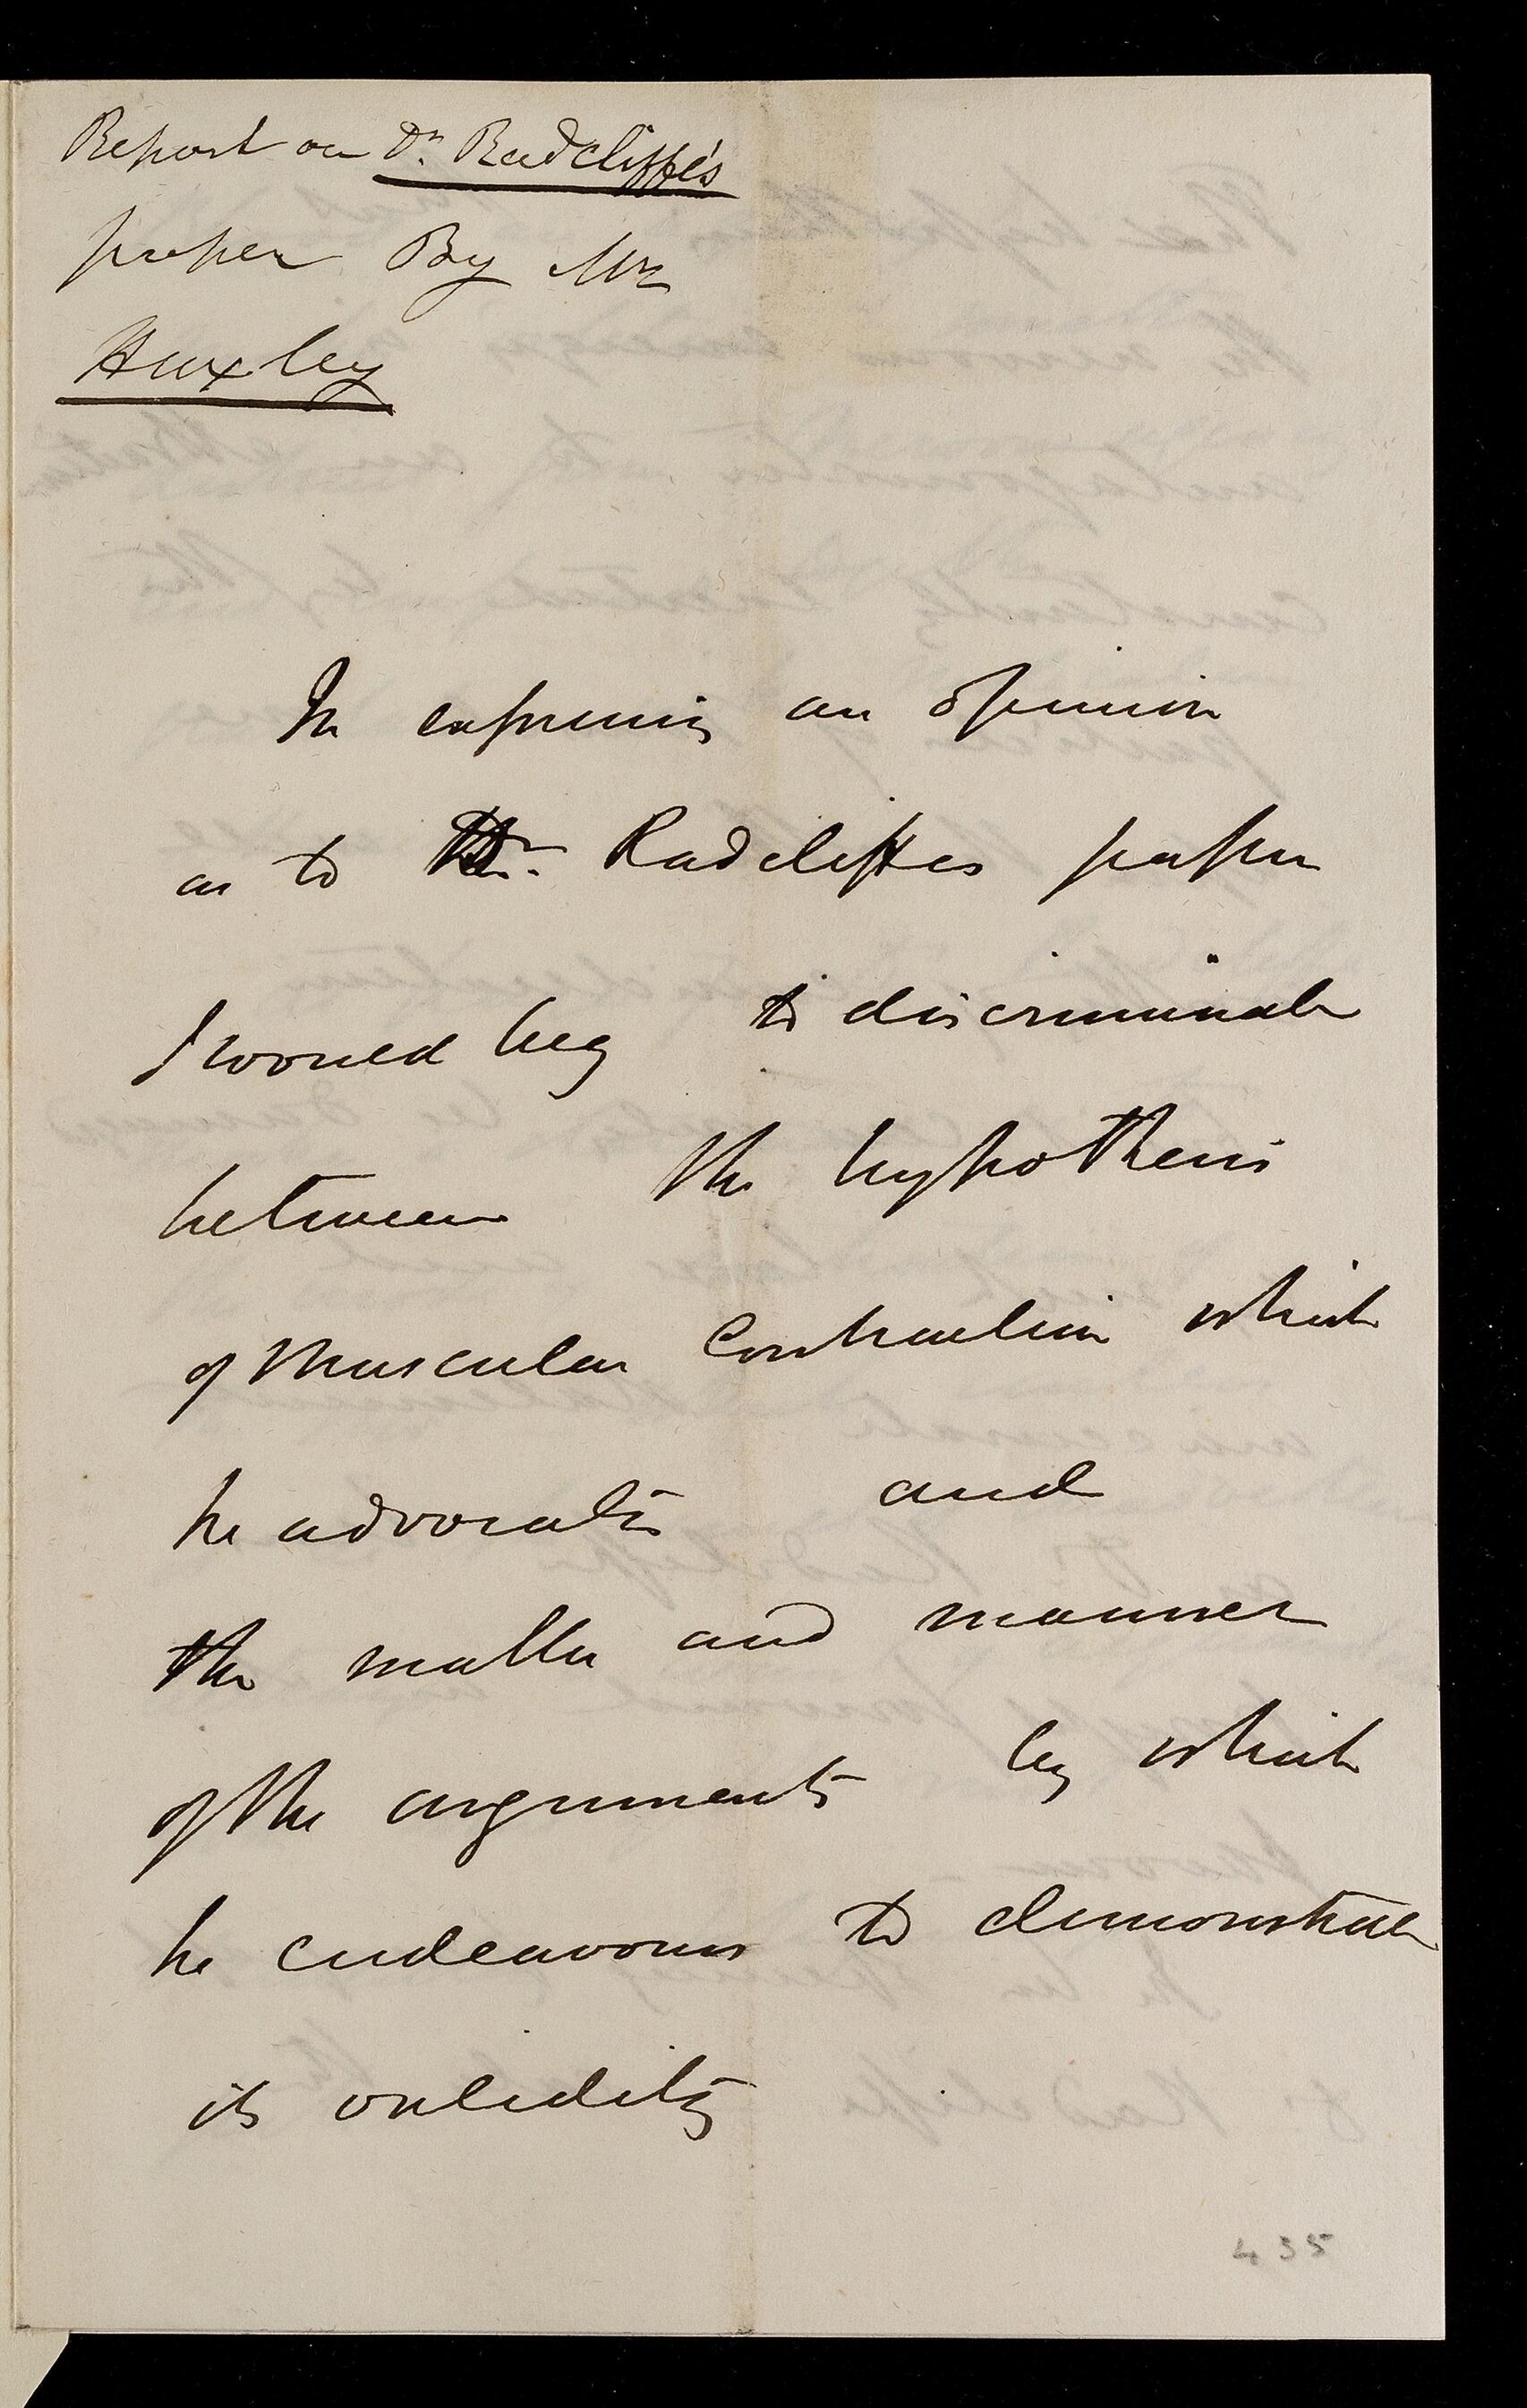 Report on Dr. Radcliffe's
paper By Mr
Huxley
In expressing an opinion
as to Dr. Radcliffes paper
I would beg to discriminate
between the hypothesis
of Muscular Contraction which
he advocates and
the matter and manner
of the arguments by which
he endeavours to demonstrate
its validity
435